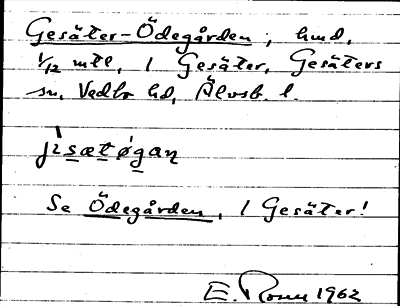 Gesäter-Ödegården; hmd,
1/12 mtl, 1 Gesäter, Gesäters
sn, Vedbo hd, Älvsb. l.
jɩsætøgan
Se Ödegården, 1 Gesäter!
E. Rosen 1962